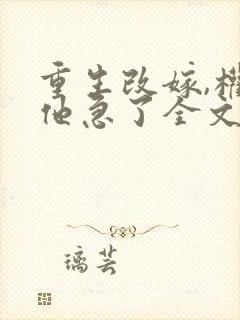 重生改嫁,权
他急了全文
璃芸